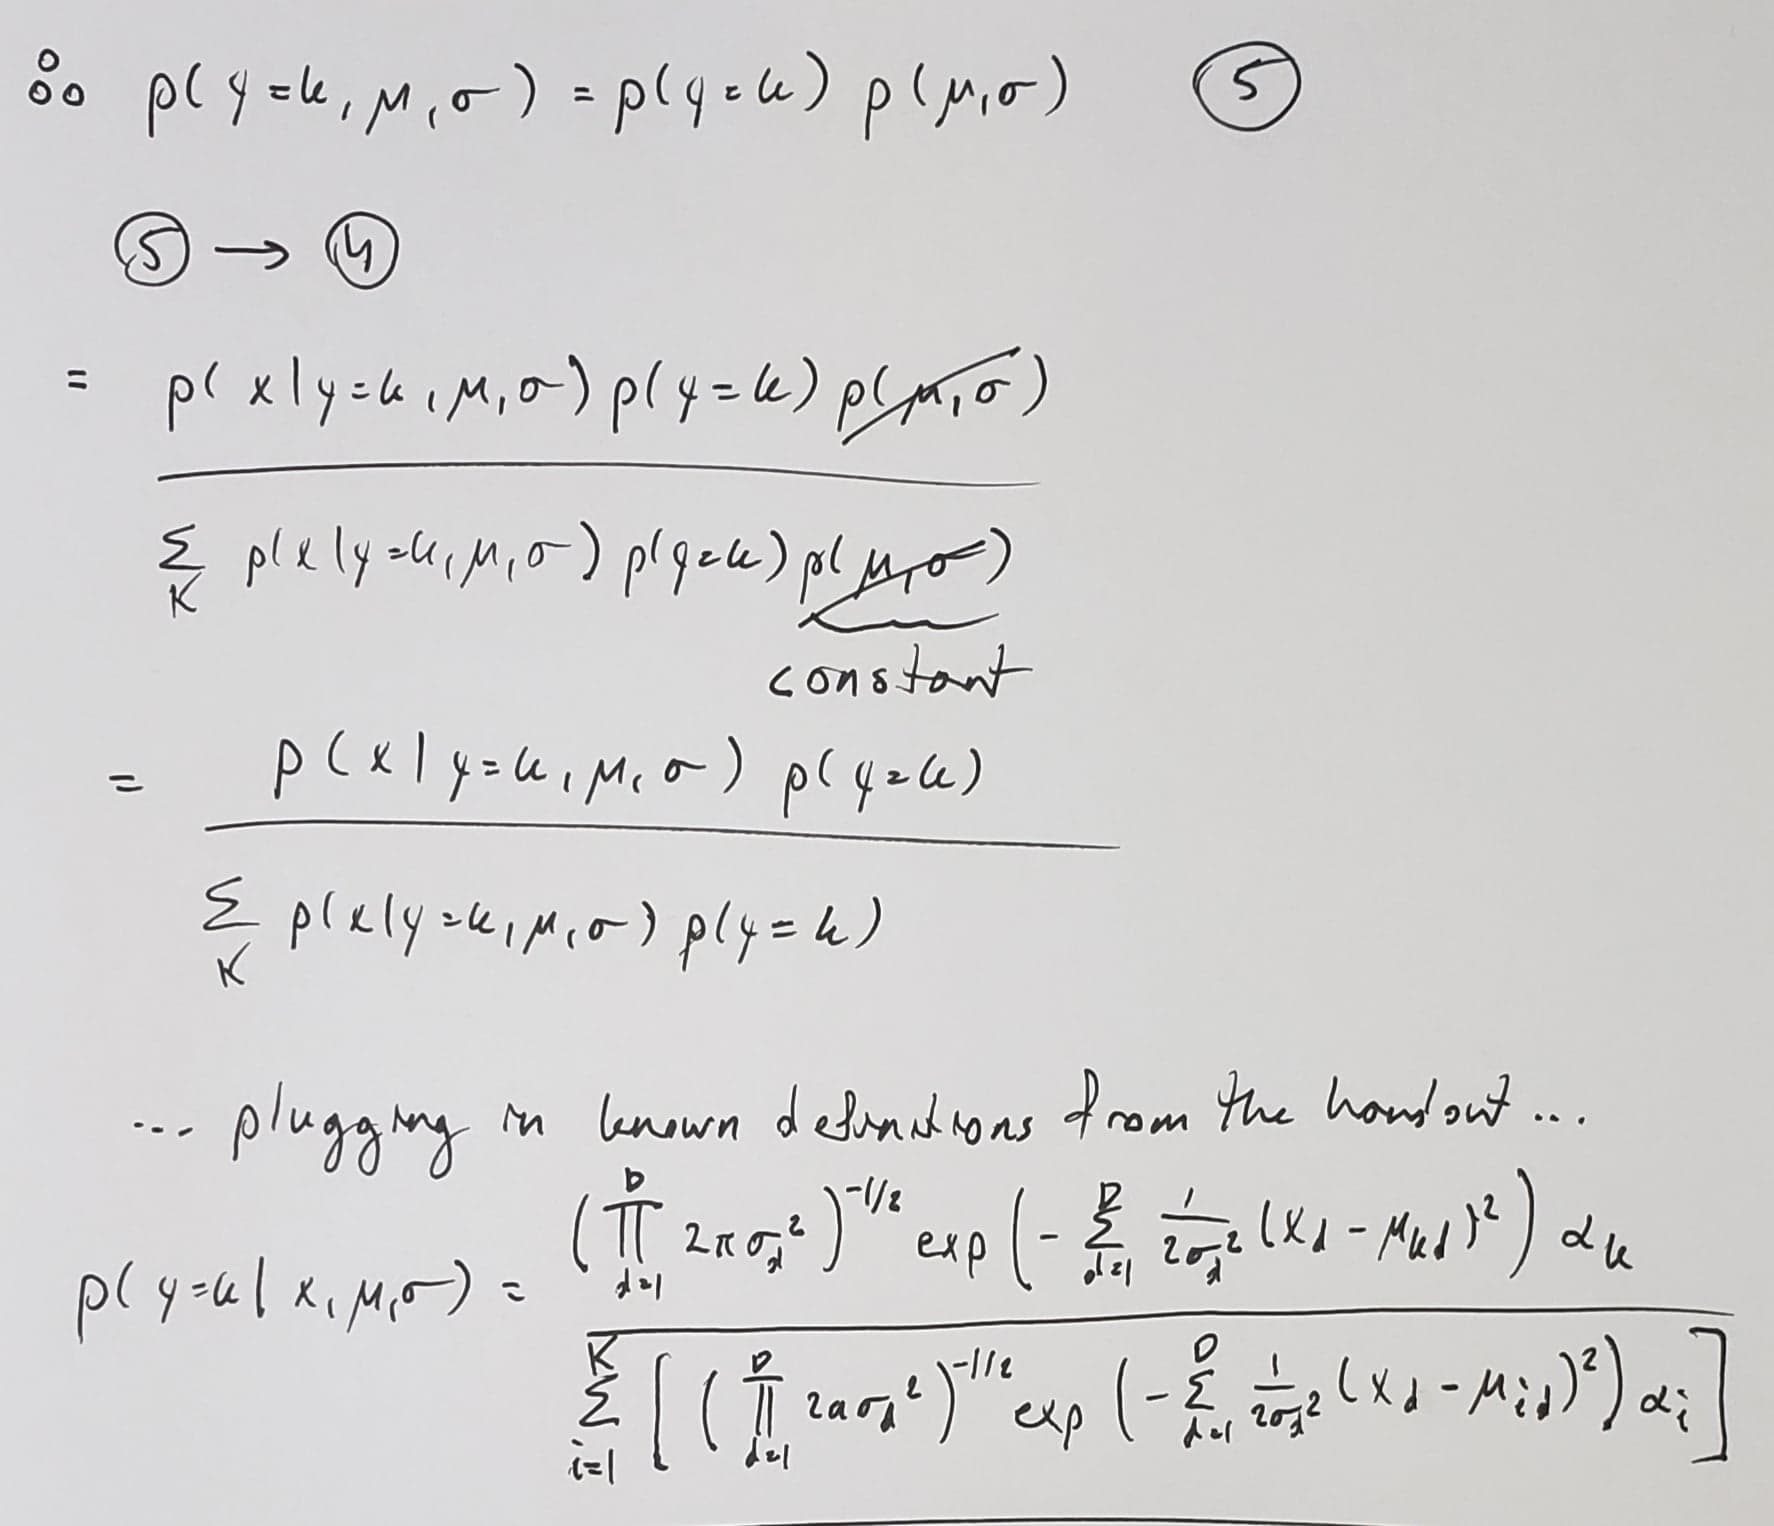 ∴ p(y=k, μ, σ) = p(y=k) p(μ,σ) ⑤
⑤ → ④
= p(x|y=k, μ, σ) p(y=k) p(μ,σ)
Σ_K p(x|y=k, μ, σ) p(y=k) p(μ,σ)
constant
= p(x|y=k, μ, σ) p(y=k)
Σ_K p(x|y=k, μ, σ) p(y=k)
... plugging in known definitions from the handout ...
(∏_{d=1}^{D} 2πσ_d²)^{-1/2} exp(-Σ_{d=1}^{D} 1/(2σ_d²) (x_d - μ_{kd})²) α_k
p(y=k | x, μ, σ) =
Σ_{i=1}^{K} [(∏_{d=1}^{D} 2πσ_d²)^{-1/2} exp(-Σ_{d=1}^{D} 1/(2σ_d²) (x_d - μ_{id})²) α_i]